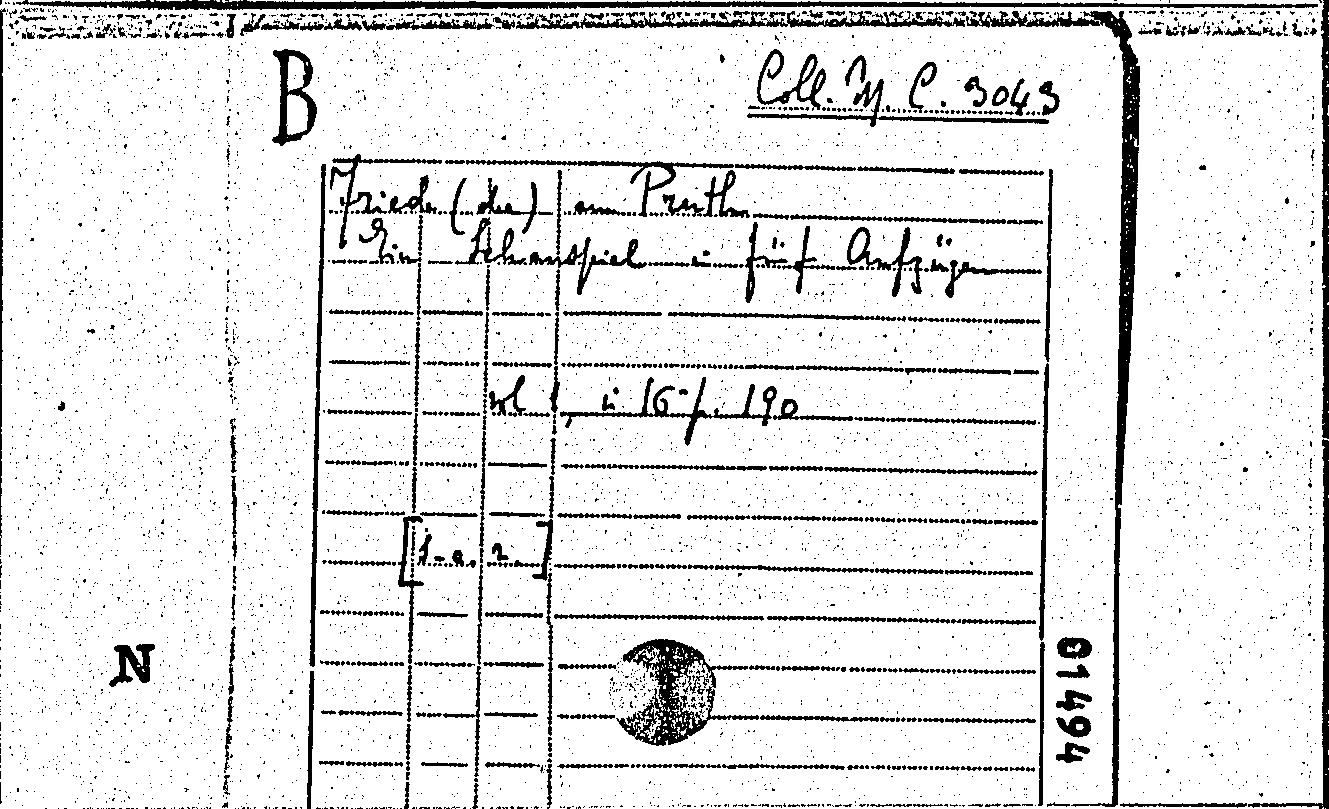 B
Coll. M. C. 3043
Friede (der) am Pruth.
Ein Schauspiel in fünf Aufzügen
vol 1, in 16-p. 190
[s. a. n.]
N
01494